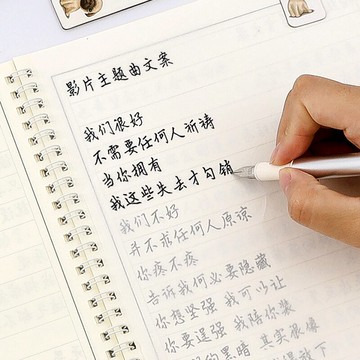 影片主题曲文案
我们很好
不需要任何人祈祷
当你拥有
我这些失去才勾销
我们不好
并不求任何人原谅
你疼不疼
告诉我何必要隐藏
你想坚强 我可以让
你要逞强 我陪你装
的黑暗 其实很像
放下